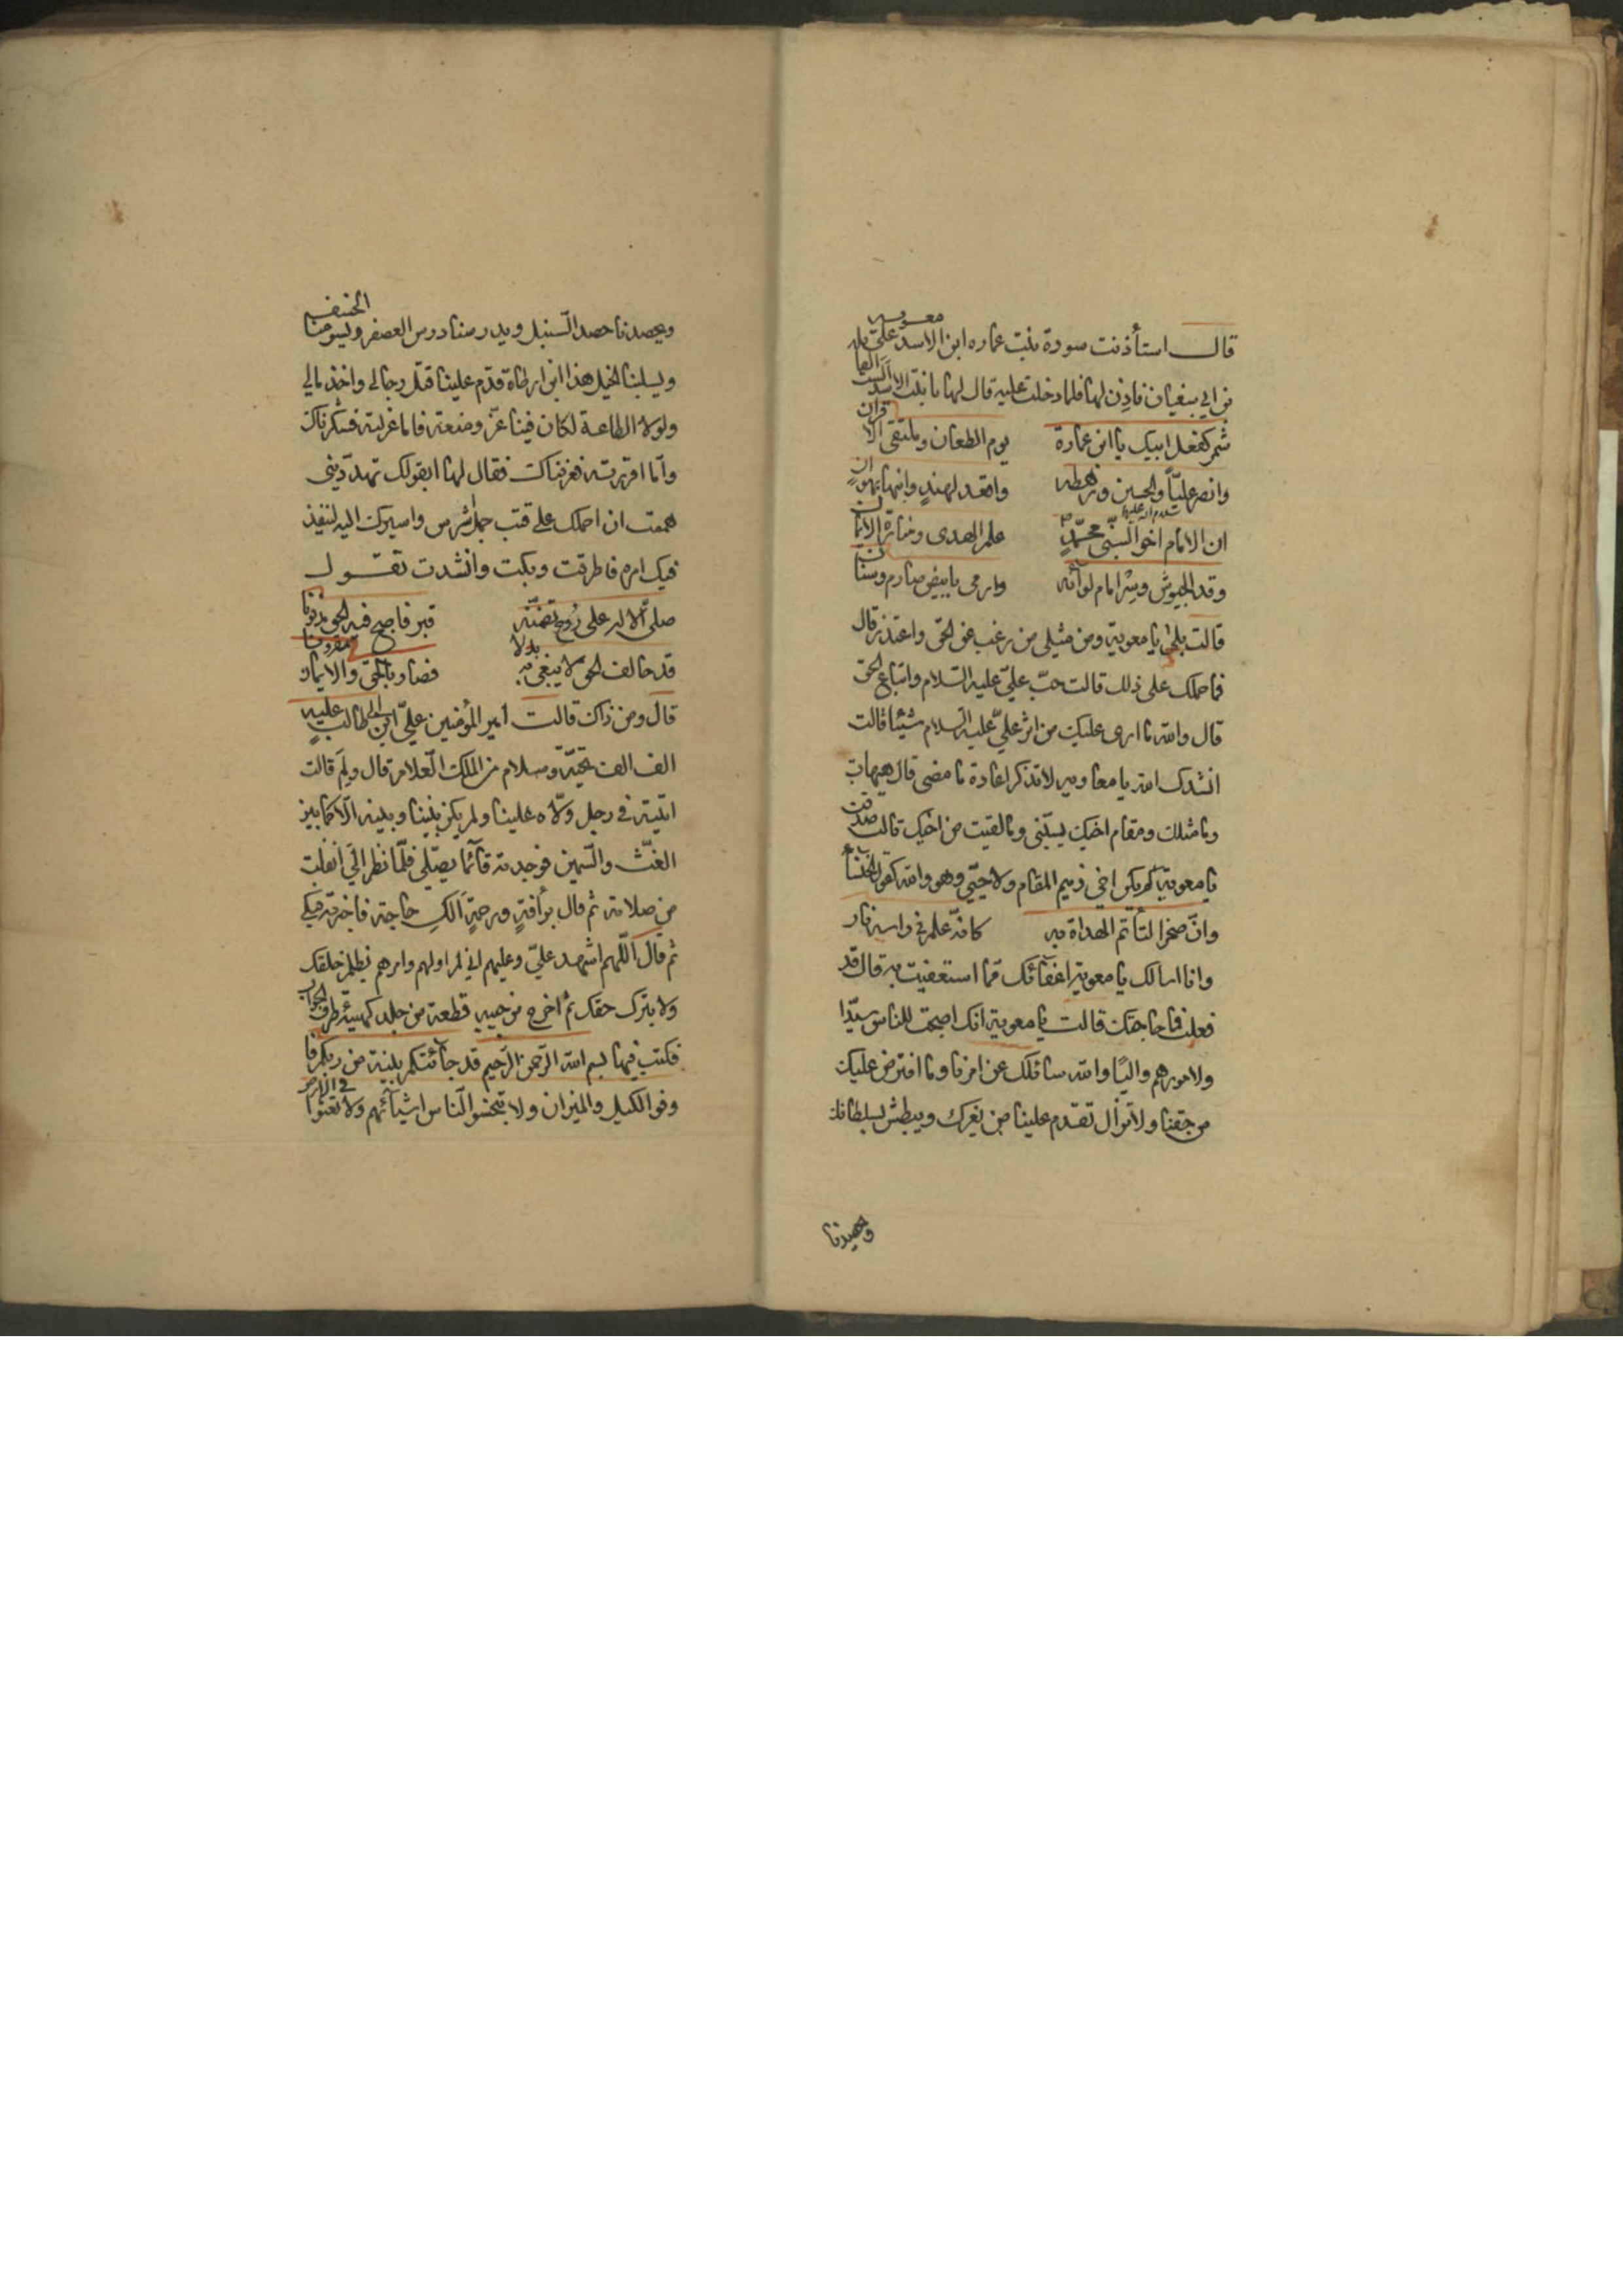 قال استأذنت سودة بنت عماره ابن الاسد على معوية
بن ابي سفيان فاذن لها فلما دخلت عليه قال لها يا بنت الاسد الست القائلة
شمر كفعل ابيك يا ابن عمارة يوم الطعان وملتقى الاقران
وانصر عليّاً والحسين ورهطه واقصد لهندٍ وابنها بهوانٍ
ان الامام اخو النبيّ محمّدٍ علم الهدى ومنارة الايمان
وقد الجيوش وسر امام لوائه وارمى بابيض صارم وسنان
قالت بلى يا معوية ومن مثلى من رغب عن الحق واعتذر قال
فما حملك على ذلك قالت حبّ عليّ عليه السلام واتباع الحق
قال والله ما ارى عليك من اثر عليّ عليه السلام شيئا قالت
انشدك الله يا معاويه لا تذكر اعادة ما مضى قال هيهات
وما مثلك ومقام اخيك ينسنى وما لقيت من اخيك قالت صدقت
يا معوية لم يكن اخى ذميم المقام ولا وهو والله كقول الخنساء
وانّ صخرا لتأتم الهداة به كانّه علم فى راسه نار
وانا اسالك يا معوية اعفائك مما استعفيت به قال قد
فعلت فما حاجتك قالت يا معوية انك اصبحت للناس سيّدا
ولامورهم واليًا والله سائلك عن امرنا وما افترض عليك
من حقنا ولا تزال تقدم علينا من يغرك ويبطش بسلطانك
ويحصدنا
ويحصدنا حصد السّنبل ويدرسنا دروس العصفر ويسومنا الخسف
ويسلبنا الخيل هذا ابن ارطاة قدّم علينا قتل رجالى واخذ مالى
ولولا الطاعة لكان فينا عزّ ومنعة فاما عزلته فشكرناك
وامّا اقررته فعرفناك فقال لها ابقولك تهدّدينى
هممت ان احملك على قتب جمل شرس واسيرك اليه لينفذ
فيك امره فاطرقت وبكت وانشدت تقول
صلّى الاله على روح تضمّنه قبر فاصبح فيه الحق مدفونا
قد حالف الحق لا يبغى به بدلا فصار بالحق والايمان مقرونا
قال ومن ذاك قالت امير المؤمنين عليّ ابن ابى طالب عليه
الف الف تحيّة وسلام من الملك العلام قال ولم قالت
اتيته فى رجل ولّاه علينا ولم يكن بيننا وبينه الّا كما بين
الغثّ والسّمين فوجدته قائما يصلّى فلمّا نظر اليّ انفلت
من صلاته ثم قال برأفةٍ ورحمةٍ الك حاجة فاخبرته فبكى
ثم قال اللّهم اشهد عليّ وعليهم انى لم اولهم وامرهم بظلم خلقك
ولا بترك حقك ثم اخرج من جيبه قطعة من جلد كهيئة طرف الجراب
فكتب فيها بسم الله الرّحمن الرّحيم قد جائتكم بينة من ربكم فا
وفوا الكيل والميزان ولا تبخسوا النّاس اشيائهم ولا تعثوا فى الارض